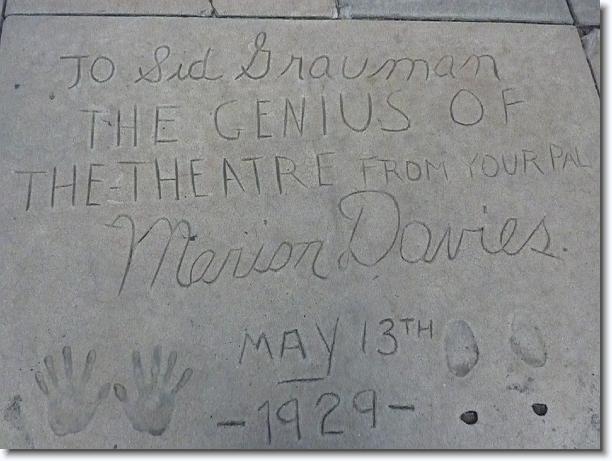 TO Sid Grauman
THE GENIUS OF
THE-THEATRE FROM YOUR PAL
Marion Davies.
MAY 13TH
-1929-